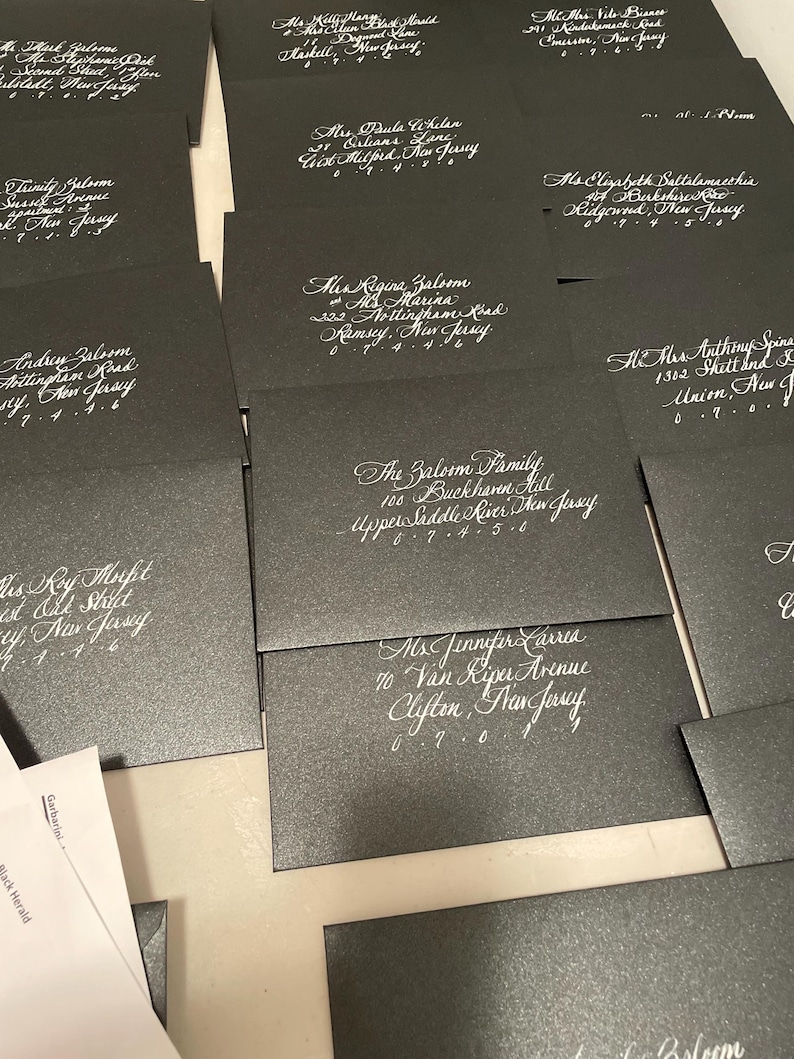 Mr. Mark Zaloom
Ms Stephanie Dick
Second Street, 1st Floor
Carlstadt, New Jersey
0 · 7 · 0 · 7 · 2
Ms Kelly
& Mrs Black Herald
Dogwood Lane
Haskell, New Jersey
0 · 7 · 4 · 2 · 0
Mr. Mrs. Vito Bianco
291 Kinderkamack Road
Emerson, New Jersey
0 · 7 · 6 · 3 · 0
Trinity Zaloom
Sussex Avenue
apartment 3
rk, New Jersey
7 · 1 · 0 · 3
Mrs. Paula Whelan
28 Orleans Lane
West Milford, New Jersey
0 · 7 · 4 · 8 · 0
Ms Elizabeth Saltalamacchia
Berkshire
Ridgewood, New Jersey
0 · 7 · 4 · 5 · 0
Andrew Zaloom
Nottingham Road
sey, New Jersey
0 · 7 · 4 · 4 · 6
Mrs Regina Zaloom
and Ms. Marina
222 Nottingham Road
Ramsey, New Jersey
0 · 7 · 4 · 4 · 6
Mr. Mrs Anthony Spina
1302 Shetland D
Union, New J
0 · 7 · 0 · 8
The Zaloom Family
100 Buckhaven Hill
Upper Saddle River, New Jersey
0 · 7 · 4 · 5 · 0
Mrs. Roy
est Oak Street
sey, New Jersey
7 · 4 · 4 · 6
Ms Jennifer Larrea
70 Van Riper Avenue
Clifton, New Jersey
0 · 7 · 0 · 1 · 1
Garbarini
Black Herald
Zaloom